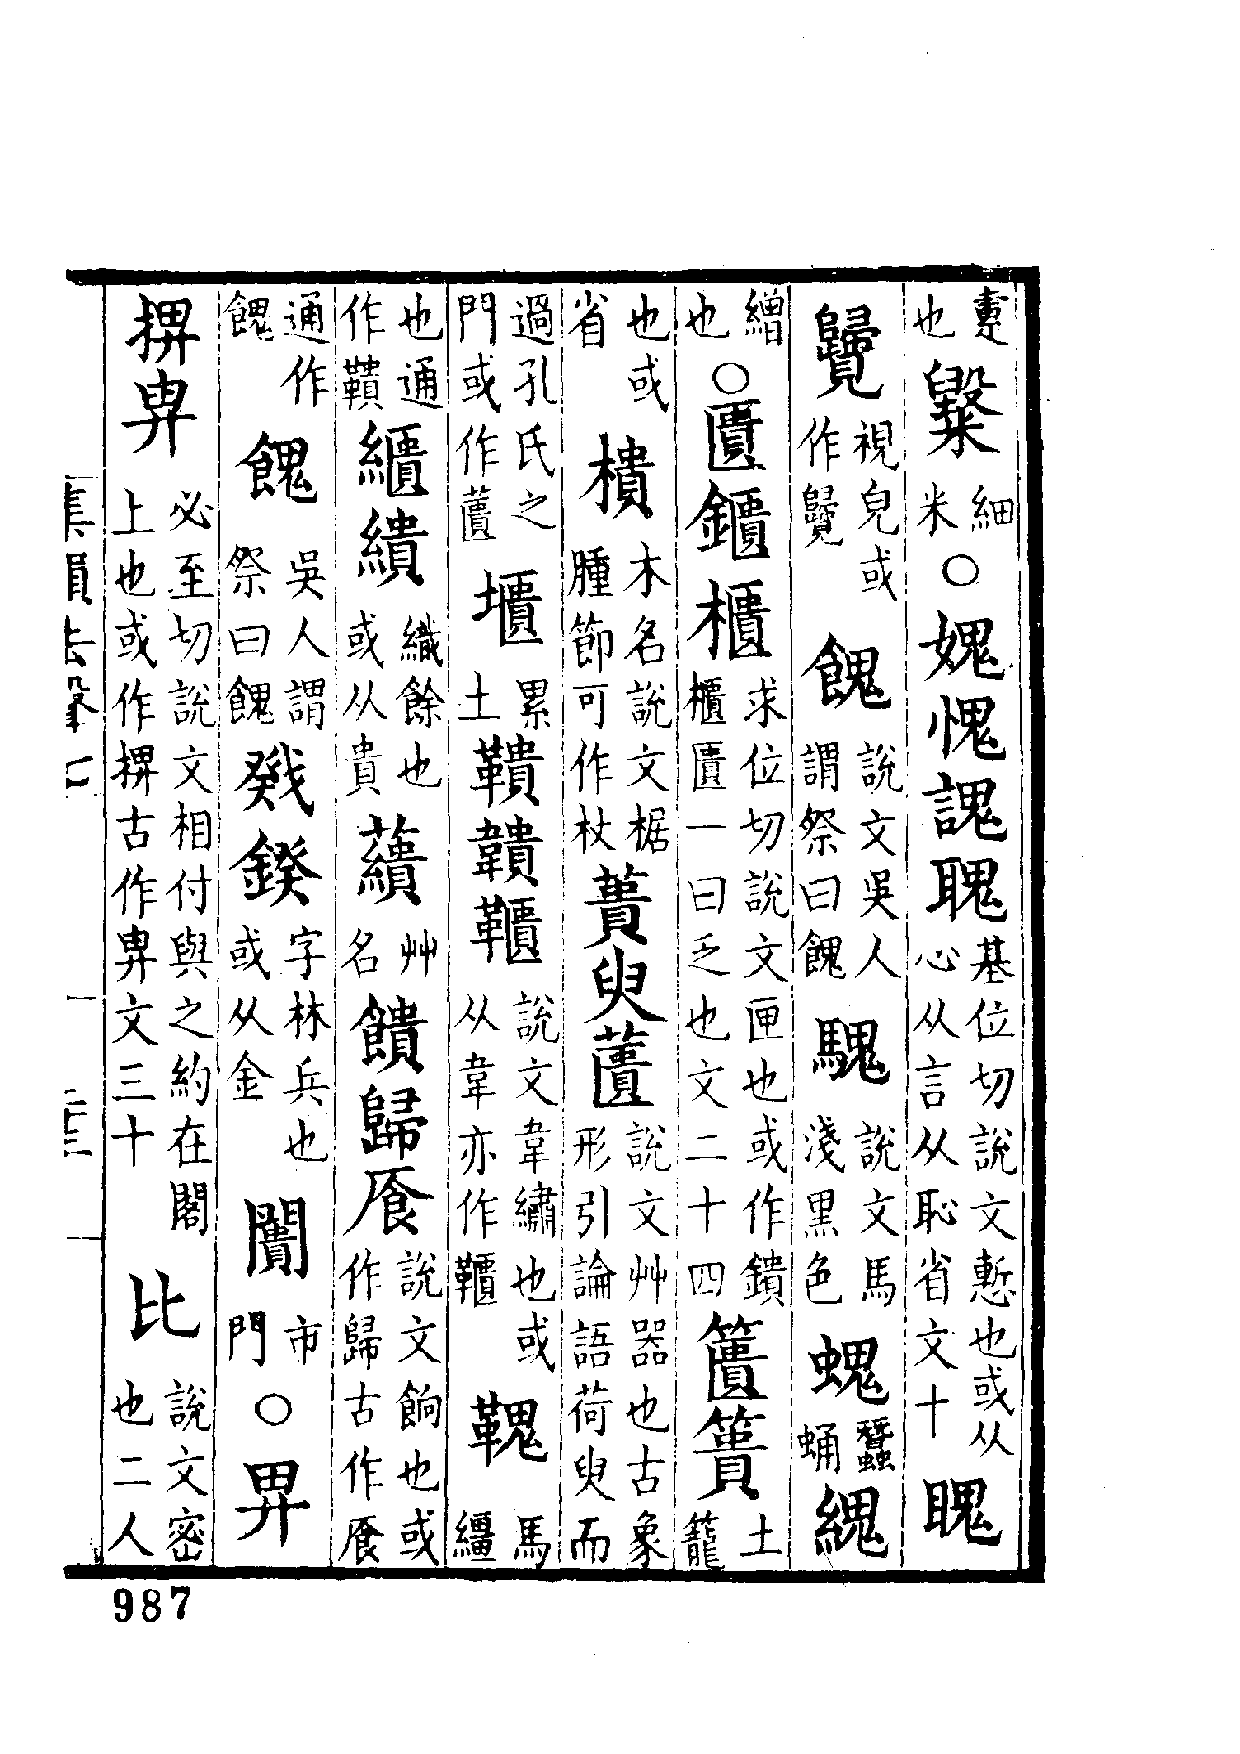 橐也 細米○媿愧謉聭基位切說文慙也或从心从言从恥省文十聭
視皃或作䙡餽說文吳人謂祭曰餽騩說文馬淺黑色螝蠶蛹䌆
繒也○匱鑎櫃求位切說文匣也或作鐀櫃匱一曰乏也文二十四籄簣土籠
也或省樻木名說文椐腫節可作杖蕢臾蔶說文艸器也古象形引論語荷臾而
過孔氏之門或作蔶壝累土鞼韇說文韋繡也或从韋亦作鞼馬繮
也通作鞼繢織餘也或从貴藬艸名饋歸說文餉也或作歸古作
通作餽餽吳人謂祭曰餽戣鍨字林兵也或从金闠市門○畀
必至切說文相付與之約在閣上也或作古作文三十比說文密也二人
集韻去聲七
987